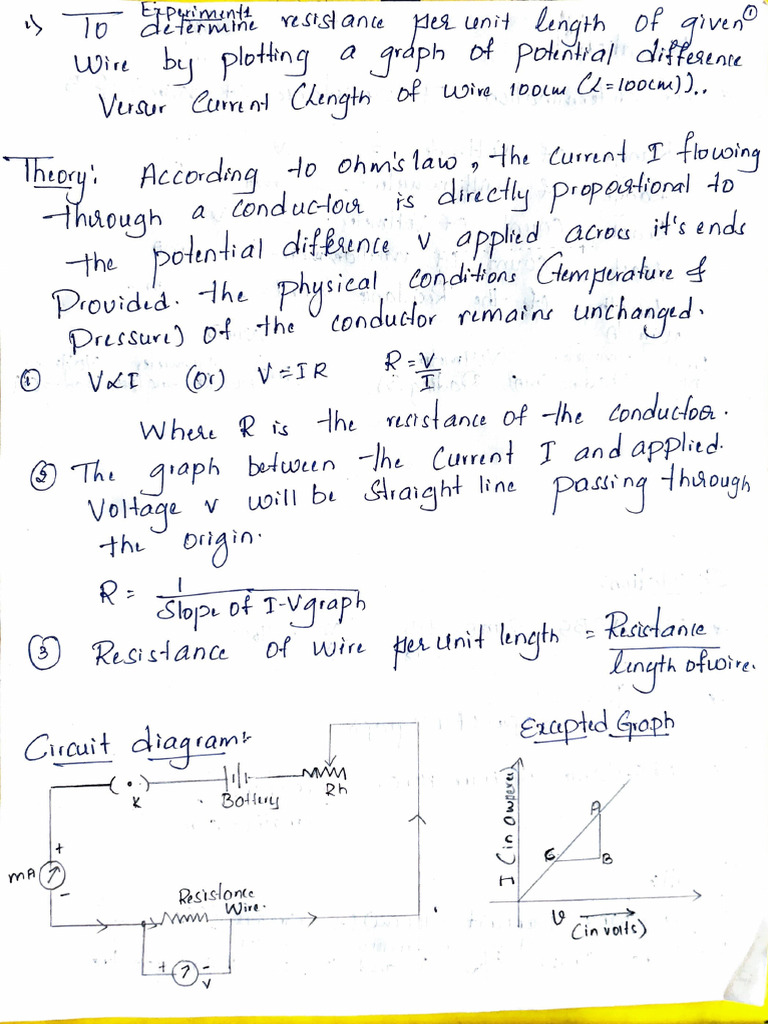 Experiments
1) To determine resistance per unit length of given ①
Wire by plotting a graph of potential difference
Versur Current (Length of wire 100cm (L=100cm))..
Theory: According to ohm's law, the current I flowing
through a conductour is directly proportional to
the potential difference v applied across it's ends
Provided. the physical conditions (temperature &
Pressure) of the conductor remains unchanged.
① V∝I (or) V=IR R=V/I
Where R is the resistance of the conductor.
② The graph between the Current I and applied.
Voltage v will be straight line passing through
the origin.
R= 1/Slope of I-V graph
③ Resistance of wire per unit length = Resistance/length of wire.
Circuit diagram:
Excepted Graph
K
Battery
Rh
+
mA
-
Resistance
Wire.
+ -
V
I (in amperes)
A
B
C
V
(in volts)